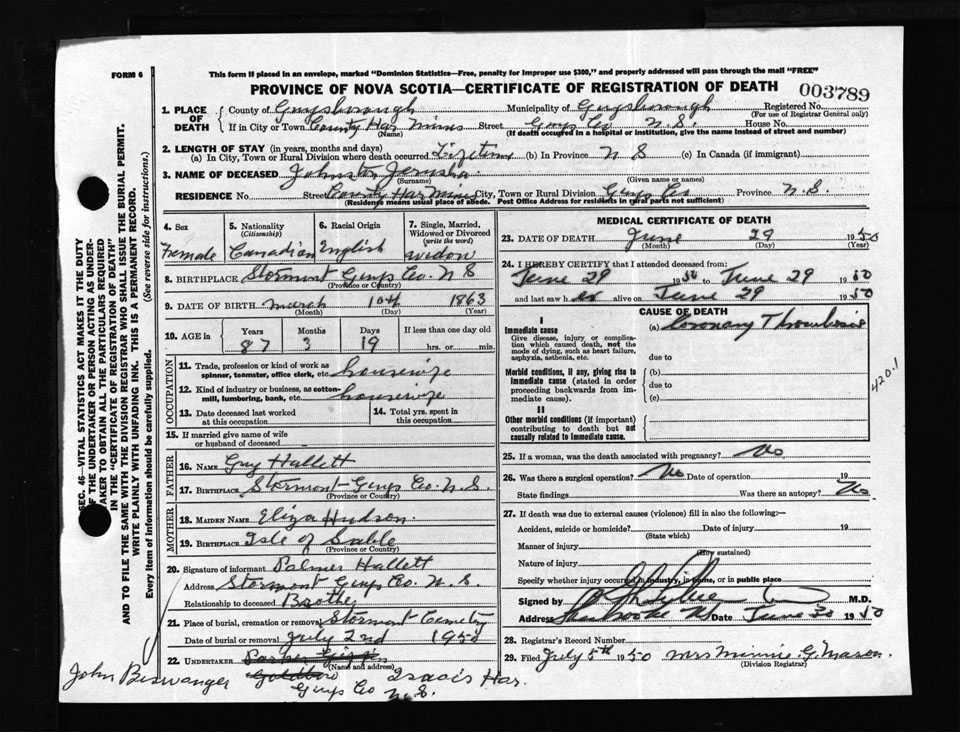 FORM 6
This form if placed in an envelope, marked "Dominion Statistics—Free, penalty for improper use $300," and properly addressed will pass through the mail "FREE"
PROVINCE OF NOVA SCOTIA—CERTIFICATE OF REGISTRATION OF DEATH 003789
1. PLACE OF DEATH { County of Guysborough Municipality of Guysborough Registered No.
(For use of Registrar General only)
If in City or Town County Har Mines Street Guys Co N.S. House No.
(Name) (If death occurred in a hospital or institution, give the name instead of street and number)
2. LENGTH OF STAY (in years, months and days)
(a) In City, Town or Rural Division where death occurred Lifetime (b) In Province N S (c) In Canada (if immigrant)
3. NAME OF DECEASED Johnston Jerusha
(Surname) (Given name or names)
RESIDENCE No. Street County Har Mines City, Town or Rural Division Guys Co Province N.S.
(Residence means usual place of abode. Post Office Address for residents in rural parts not sufficient)
4. Sex Female
5. Nationality (Citizenship) Canadian
6. Racial Origin English
7. Single, Married, Widowed or Divorced (write the word) widow
8. BIRTHPLACE Stormont Guys Co. N S
(Province or Country)
9. DATE OF BIRTH March 10th 1863
(Month) (Day) (Year)
10. AGE in Years Months Days If less than one day old
87 3 19 hrs. or min.
OCCUPATION
11. Trade, profession or kind of work as spinner, teamster, office clerk, etc. housewife
12. Kind of industry or business, as cotton-mill, lumbering, bank, etc. housewife
13. Date deceased last worked at this occupation
14. Total yrs. spent in this occupation
15. If married give name of wife or husband of deceased
FATHER
16. Name Guy Hallett
17. Birthplace Stormont Guys Co. N.S.
(Province or Country)
MOTHER
18. Maiden Name Eliza Hudson
19. Birthplace Isle of Sable
(Province or Country)
20. Signature of informant Palmer Hallett
Address Stormont Guys Co. N.S.
Relationship to deceased Brother
21. Place of burial, cremation or removal Stormont Cemetry
Date of burial or removal July 2nd 1950
22. UNDERTAKER
(Name and address)
Goldboro
John Beswanger Isaacs Har.
Guys Co N.S.
MEDICAL CERTIFICATE OF DEATH
23. DATE OF DEATH June 29 1950
(Month) (Day) (Year)
24. I HEREBY CERTIFY that I attended deceased from:
June 29 1950 to June 29 1950
and last saw her alive on June 29 1950
CAUSE OF DEATH
I
Immediate cause
Give disease, injury or complication which caused death, not the mode of dying, such as heart failure, asphyxia, asthenia, etc.
(a) Coronary Thrombosis
due to
Morbid conditions, if any, giving rise to immediate cause (stated in order proceeding backwards from immediate cause).
(b)
due to
(c)
II
Other morbid conditions (if important) contributing to death but not causally related to immediate cause.
420.1
25. If a woman, was the death associated with pregnancy? No
26. Was there a surgical operation? No Date of operation 19
State findings Was there an autopsy? No
27. If death was due to external causes (violence) fill in also the following:—
Accident, suicide or homicide? Date of injury 19
(State which)
Manner of injury
(How sustained)
Nature of injury
Specify whether injury occurred in industry, in home, or in public place
Signed by M.D.
Address Sherbrooke NS Date June 30 1950
28. Registrar's Record Number
29. Filed July 5th 1950 Mrs Minnie G. Mason.
(Division Registrar)
SEC. 46—VITAL STATISTICS ACT MAKES IT THE DUTY OF THE UNDERTAKER OR PERSON ACTING AS UNDERTAKER TO OBTAIN ALL THE PARTICULARS REQUIRED IN THE "CERTIFICATE OF REGISTRATION OF DEATH"
AND TO FILE THE SAME WITH THE DIVISION REGISTRAR WHO SHALL ISSUE THE BURIAL PERMIT.
WRITE PLAINLY WITH UNFADING INK. THIS IS A PERMANENT RECORD.
Every item of information should be carefully supplied. (See reverse side for instructions.)